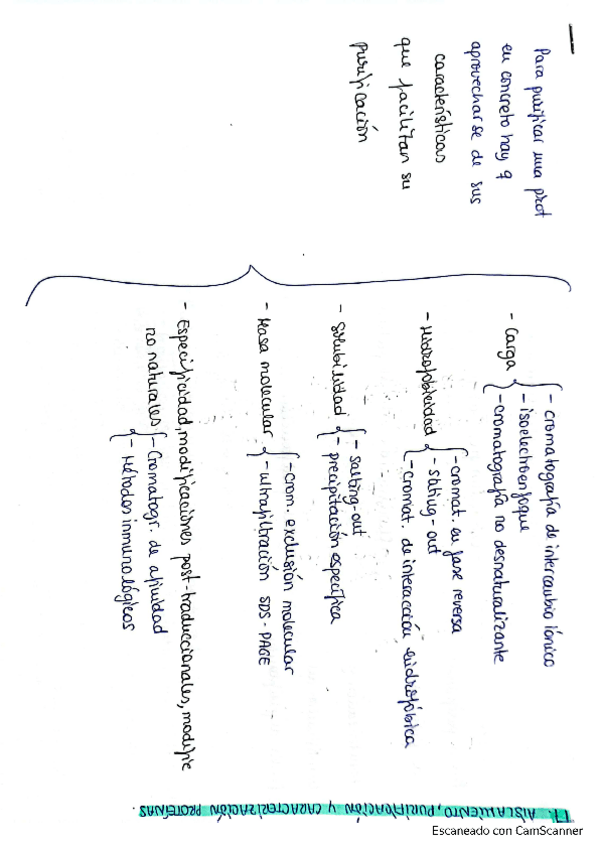 17. AISLAMIENTO, PURIFICACIÓN Y CARACTERIZACIÓN PROTEÍNAS.
Para purificar una prot
en concreto hay q
aprovecharse de sus
características
que facilitan su
purificación
- Carga
- cromatografía de intercambio iónico
- isoelectroenfoque
- cromatografía no desnaturalizante
- Hidrofobicidad
- cromat. en fase reversa
- salting-out
- cromat. de interacción hidrofóbica
- Solubilidad
- salting-out
- precipitación específica
- Masa molecular
- crom. exclusión molecular
- ultrafiltración SDS-PAGE
- Especificidad, modificaciones post-traduccionales, modific
no naturales
- Cromatogr. de afinidad
- Métodos inmunológicos
Escaneado con CamScanner